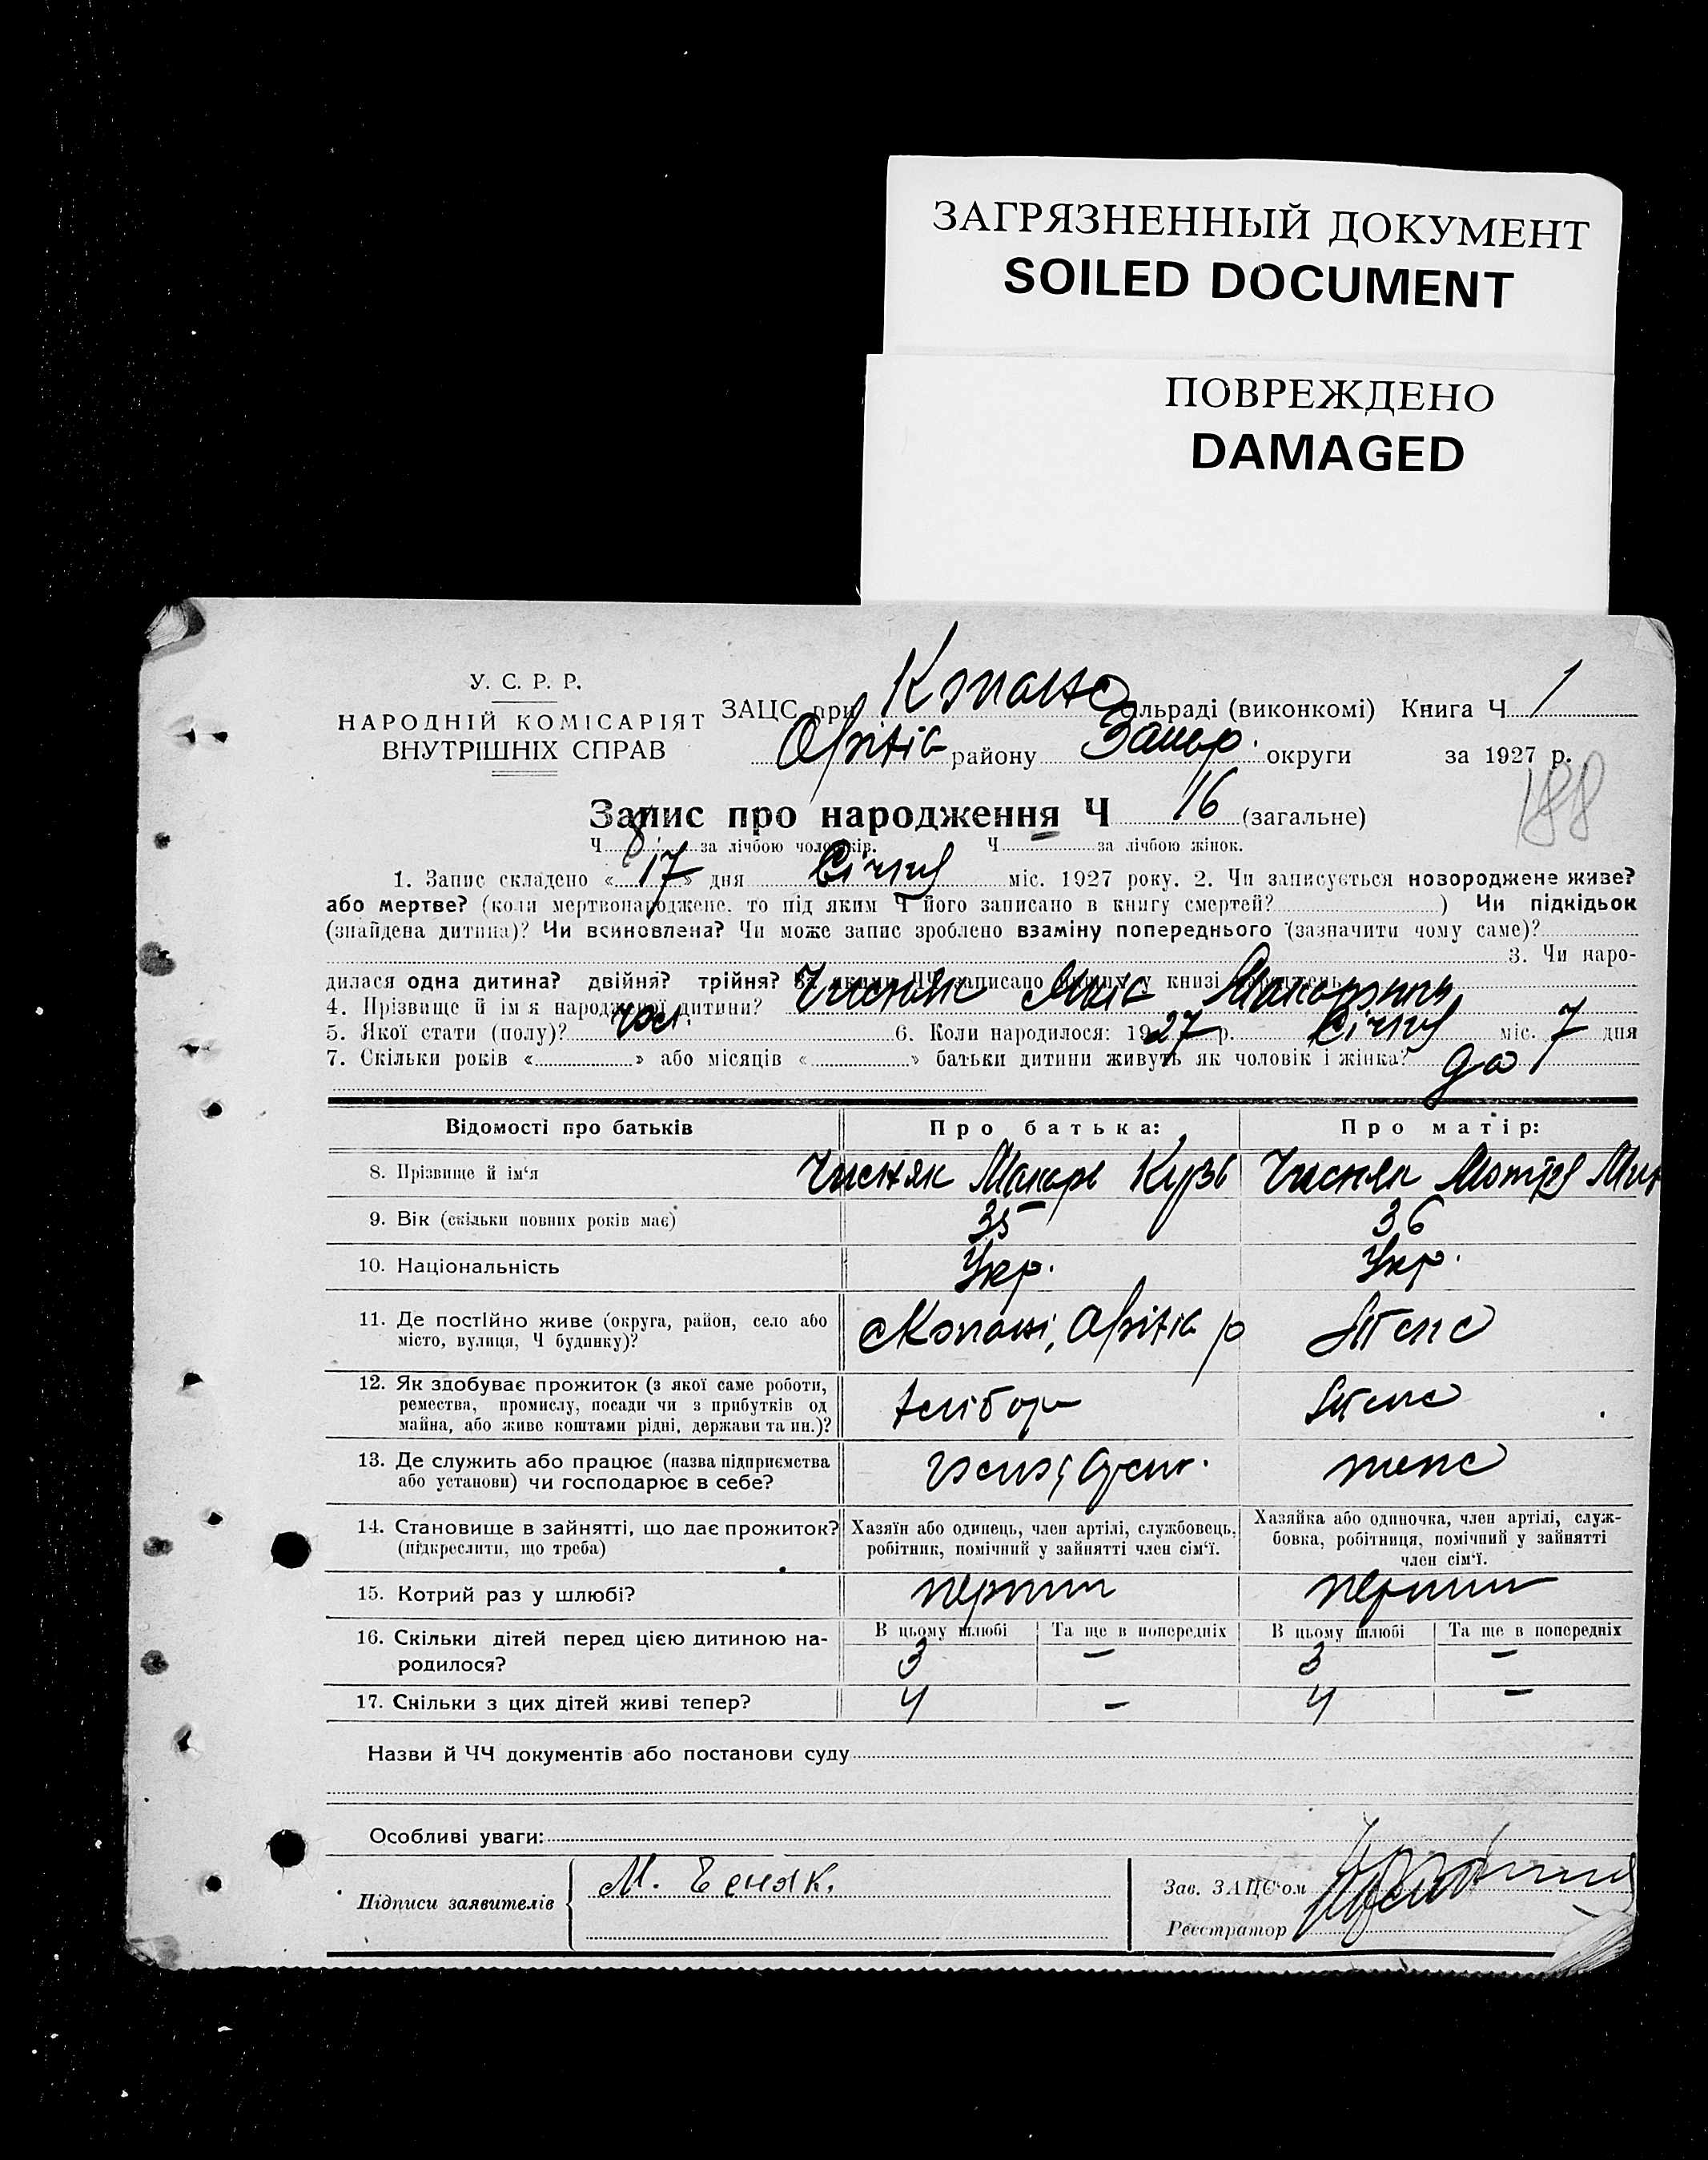 ЗАГРЯЗНЕННЫЙ ДОКУМЕНТ
SOILED DOCUMENT
ПОВРЕЖДЕНО
DAMAGED
У. С. Р. Р.
НАРОДНІЙ КОМІСАРІЯТ
ВНУТРІШНІХ СПРАВ
ЗАЦС при Копано ільраді (виконкомі) Книга Ч 1
Оріхів району Запор. округи за 1927 р.
188
Запис про народження Ч 16 (загальне)
Ч 8 за лічбою чоловіків. Ч за лічбою жінок.
1. Запис складено « 17 » дня Січня міс. 1927 року. 2. Чи записується новороджене живе?
або мертве? (коли мертвонароджене, то під яким Ч його записано в книгу смертей? ) Чи підкідьок
(знайдена дитина)? Чи всиновлена? Чи може запис зроблено взаміну попереднього (зазначити чому саме)?
3. Чи наро-
дилася одна дитина? двійня? трійня? записано у книзі
4. Прізвище й ім'я народженої дитини? Макарович
5. Якої стати (полу)? чол. 6. Коли народилося: 1927 р. Січня міс. 7 дня
7. Скільки років « » або місяців « » батьки дитини живуть як чоловік і жінка? до
Відомості про батьків Про батька: Про матір:
8. Прізвище й ім'я Чисняк Макарь Кузь Чисняк Мотря
9. Вік (скільки повних років має) 35 36
10. Національність Укр. Укр.
11. Де постійно живе (округа, район, село або Копані, Оріхів р
місто, вулиця, Ч будинку)?
12. Як здобуває прожиток (з якої саме роботи,
ремества, промислу, посади чи з прибутків од
майна, або живе коштами рідні, держави та ин.)?
13. Де служить або працює (назва підприємства
або установи) чи господарює в себе?
14. Становище в зайнятті, що дає прожиток?
(підкреслити, що треба)
Хазяїн або одинець, член артілі, службовець,
робітник, помічний у зайнятті член сім'ї.
Хазяйка або одиночка, член артілі, служ-
бовка, робітниця, помічний у зайнятті
член сім'ї.
15. Котрий раз у шлюбі? перший перший
16. Скільки дітей перед цією дитиною на-
родилося?
В цьому шлюбі Та ще в попередніх В цьому шлюбі Та ще в попередніх
3 – 3 –
17. Скільки з цих дітей живі тепер? 4 – 4 –
Назви й ЧЧ документів або постанови суду
Особливі уваги:
Підписи заявителів М. Чсняк.
Зав. ЗАЦС'ом
Реєстратор